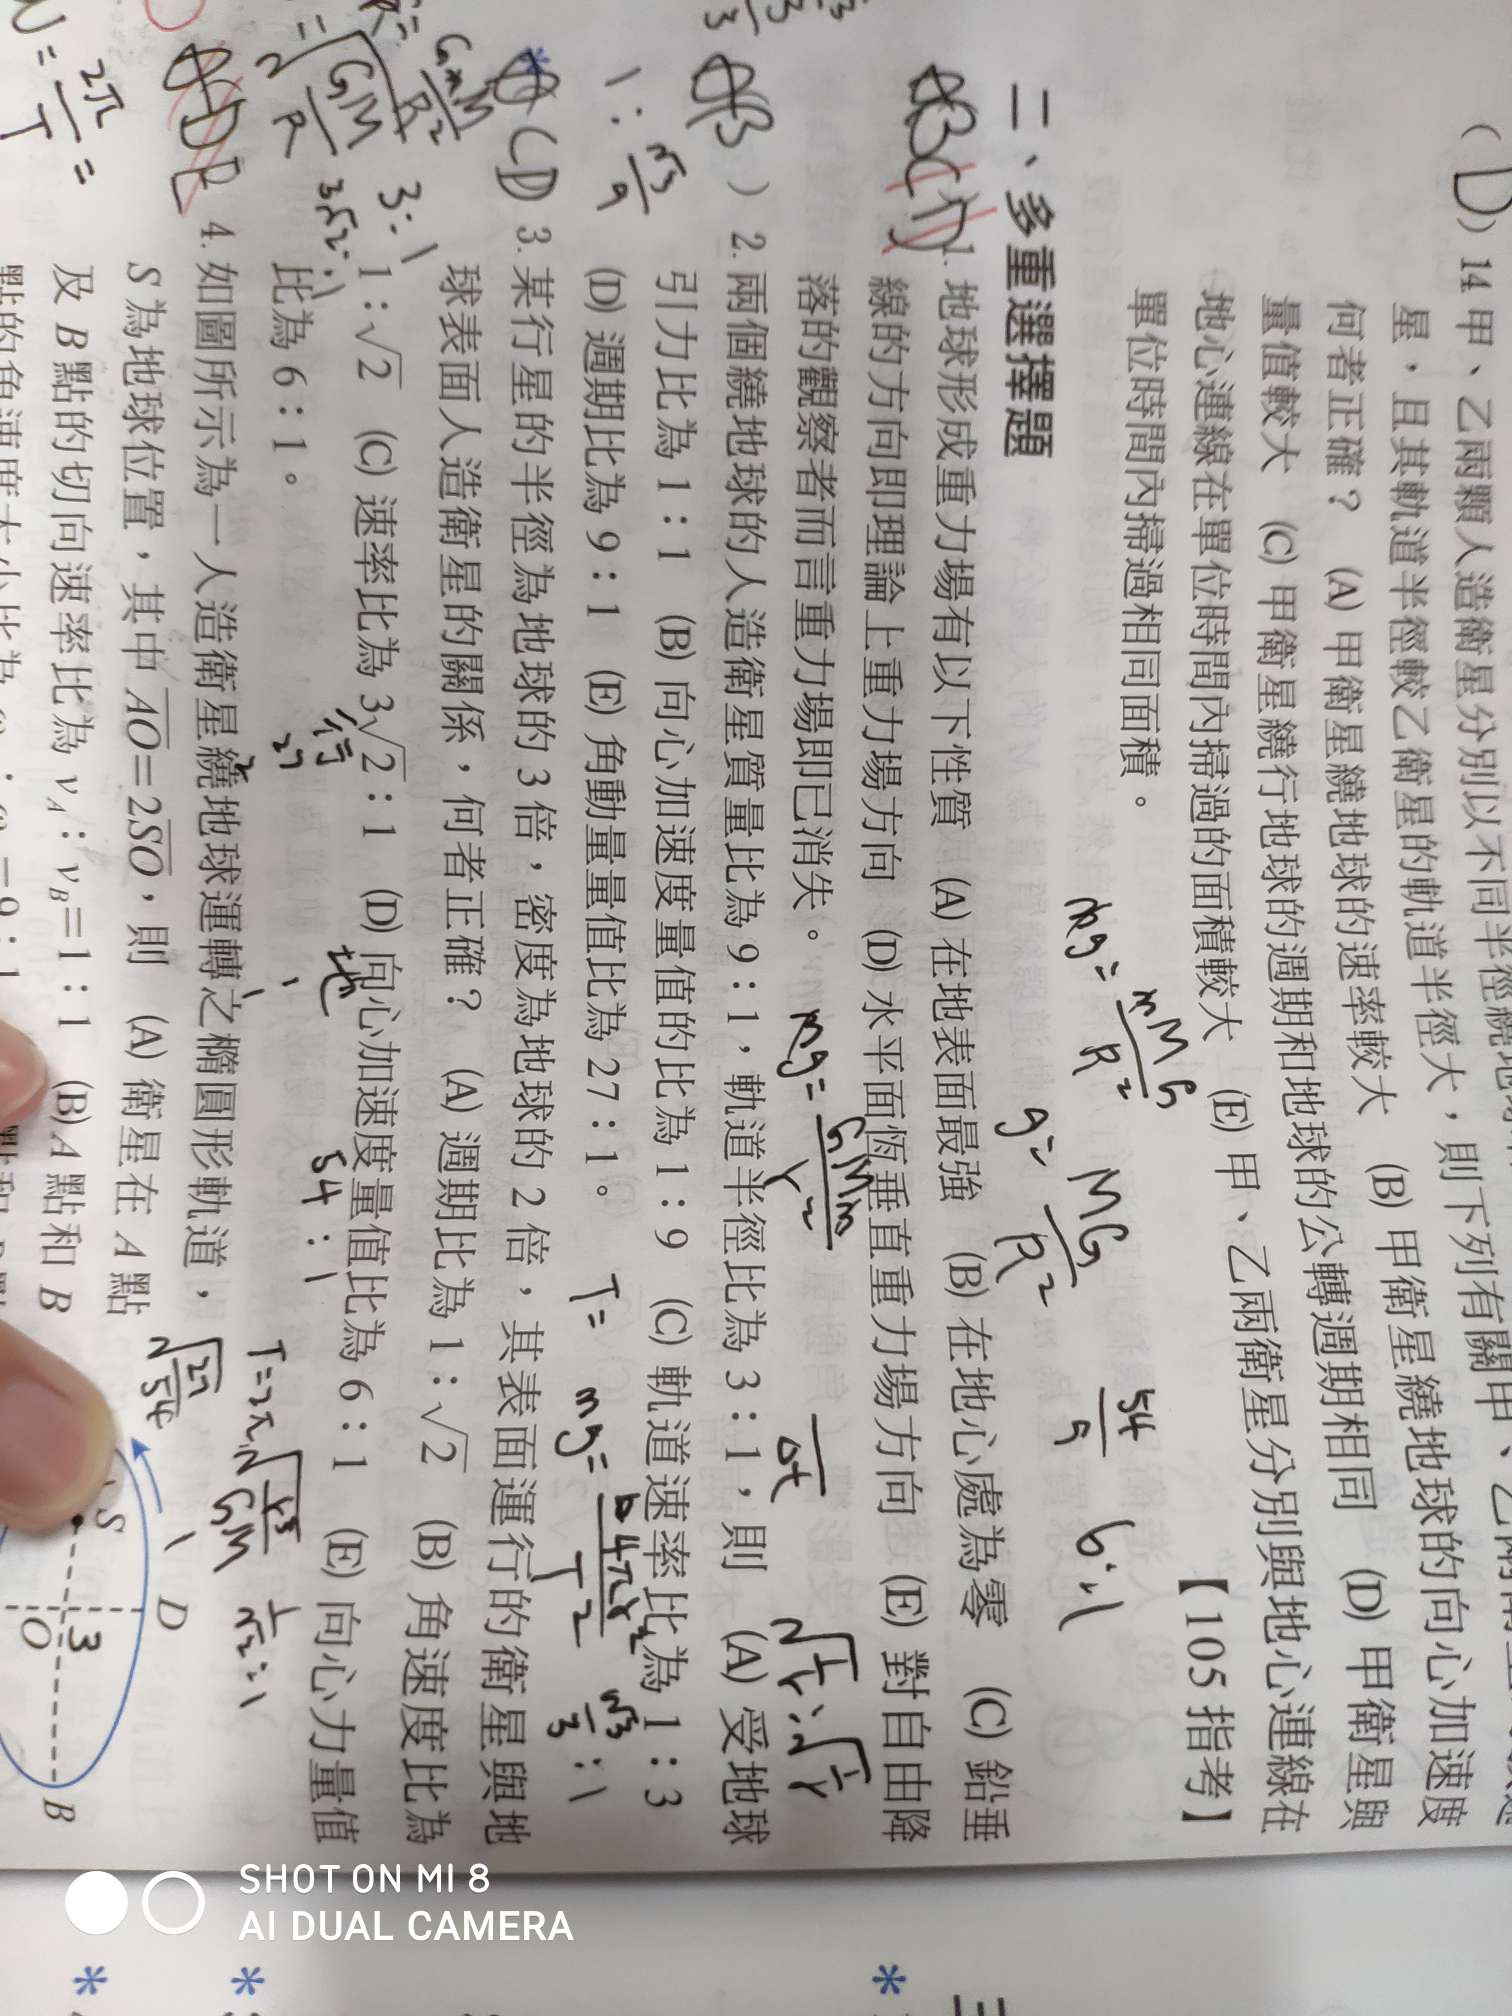 (D) 14 甲、乙兩顆人造衛星分別以不同半徑繞地球
星，且其軌道半徑較乙衛星的軌道半徑大，則下列有關甲、乙兩
何者正確？ (A) 甲衛星繞地球的速率較大 (B) 甲衛星繞地球的向心加速度
量值較大 (C) 甲衛星繞行地球的週期和地球的公轉週期相同 (D) 甲衛星與
地心連線在單位時間內掃過的面積較大 (E) 甲、乙兩衛星分別與地心連線在
單位時間內掃過相同面積。 【105 指考】
mg = mMG/R² 54/9 6:1
g = MG/R²
二、多重選擇題
1. 地球形成重力場有以下性質 (A) 在地表面最強 (B) 在地心處為零 (C) 鉛垂
線的方向即理論上重力場方向 (D) 水平面恆垂直重力場方向 (E) 對自由降
落的觀察者而言重力場即已消失。
mg = GMm/r²
2. 兩個繞地球的人造衛星質量比為 9：1，軌道半徑比為 3：1，則 (A) 受地球
引力比為 1：1 (B) 向心加速度量值的比為 1：9 (C) 軌道速率比為 1：3
(D) 週期比為 9：1 (E) 角動量量值比為 27：1。
T=
1 : √3/9
√3/3 : 1
3. 某行星的半徑為地球的 3 倍，密度為地球的 2 倍，其表面運行的衛星與地
球表面人造衛星的關係，何者正確？ (A) 週期比為 1：√2 (B) 角速度比為
1：√2 (C) 速率比為 3√2：1 (D) 向心加速度量值比為 6：1 (E) 向心力量值
比為 6：1。
GmM/R²
√GM/R
3:1
3√2:1
行 地
27 1
54 : 1
√27/54
1/√2 : 1
4. 如圖所示為一人造衛星繞地球運轉之橢圓形軌道，
S 為地球位置，其中 AO＝2SO，則 (A) 衛星在 A 點
及 B 點的切向速率比為 vA：vB＝1：1 (B) A 點和 B
2π/T =
S
D
3
O
B
SHOT ON MI 8
AI DUAL CAMERA
*
*
*